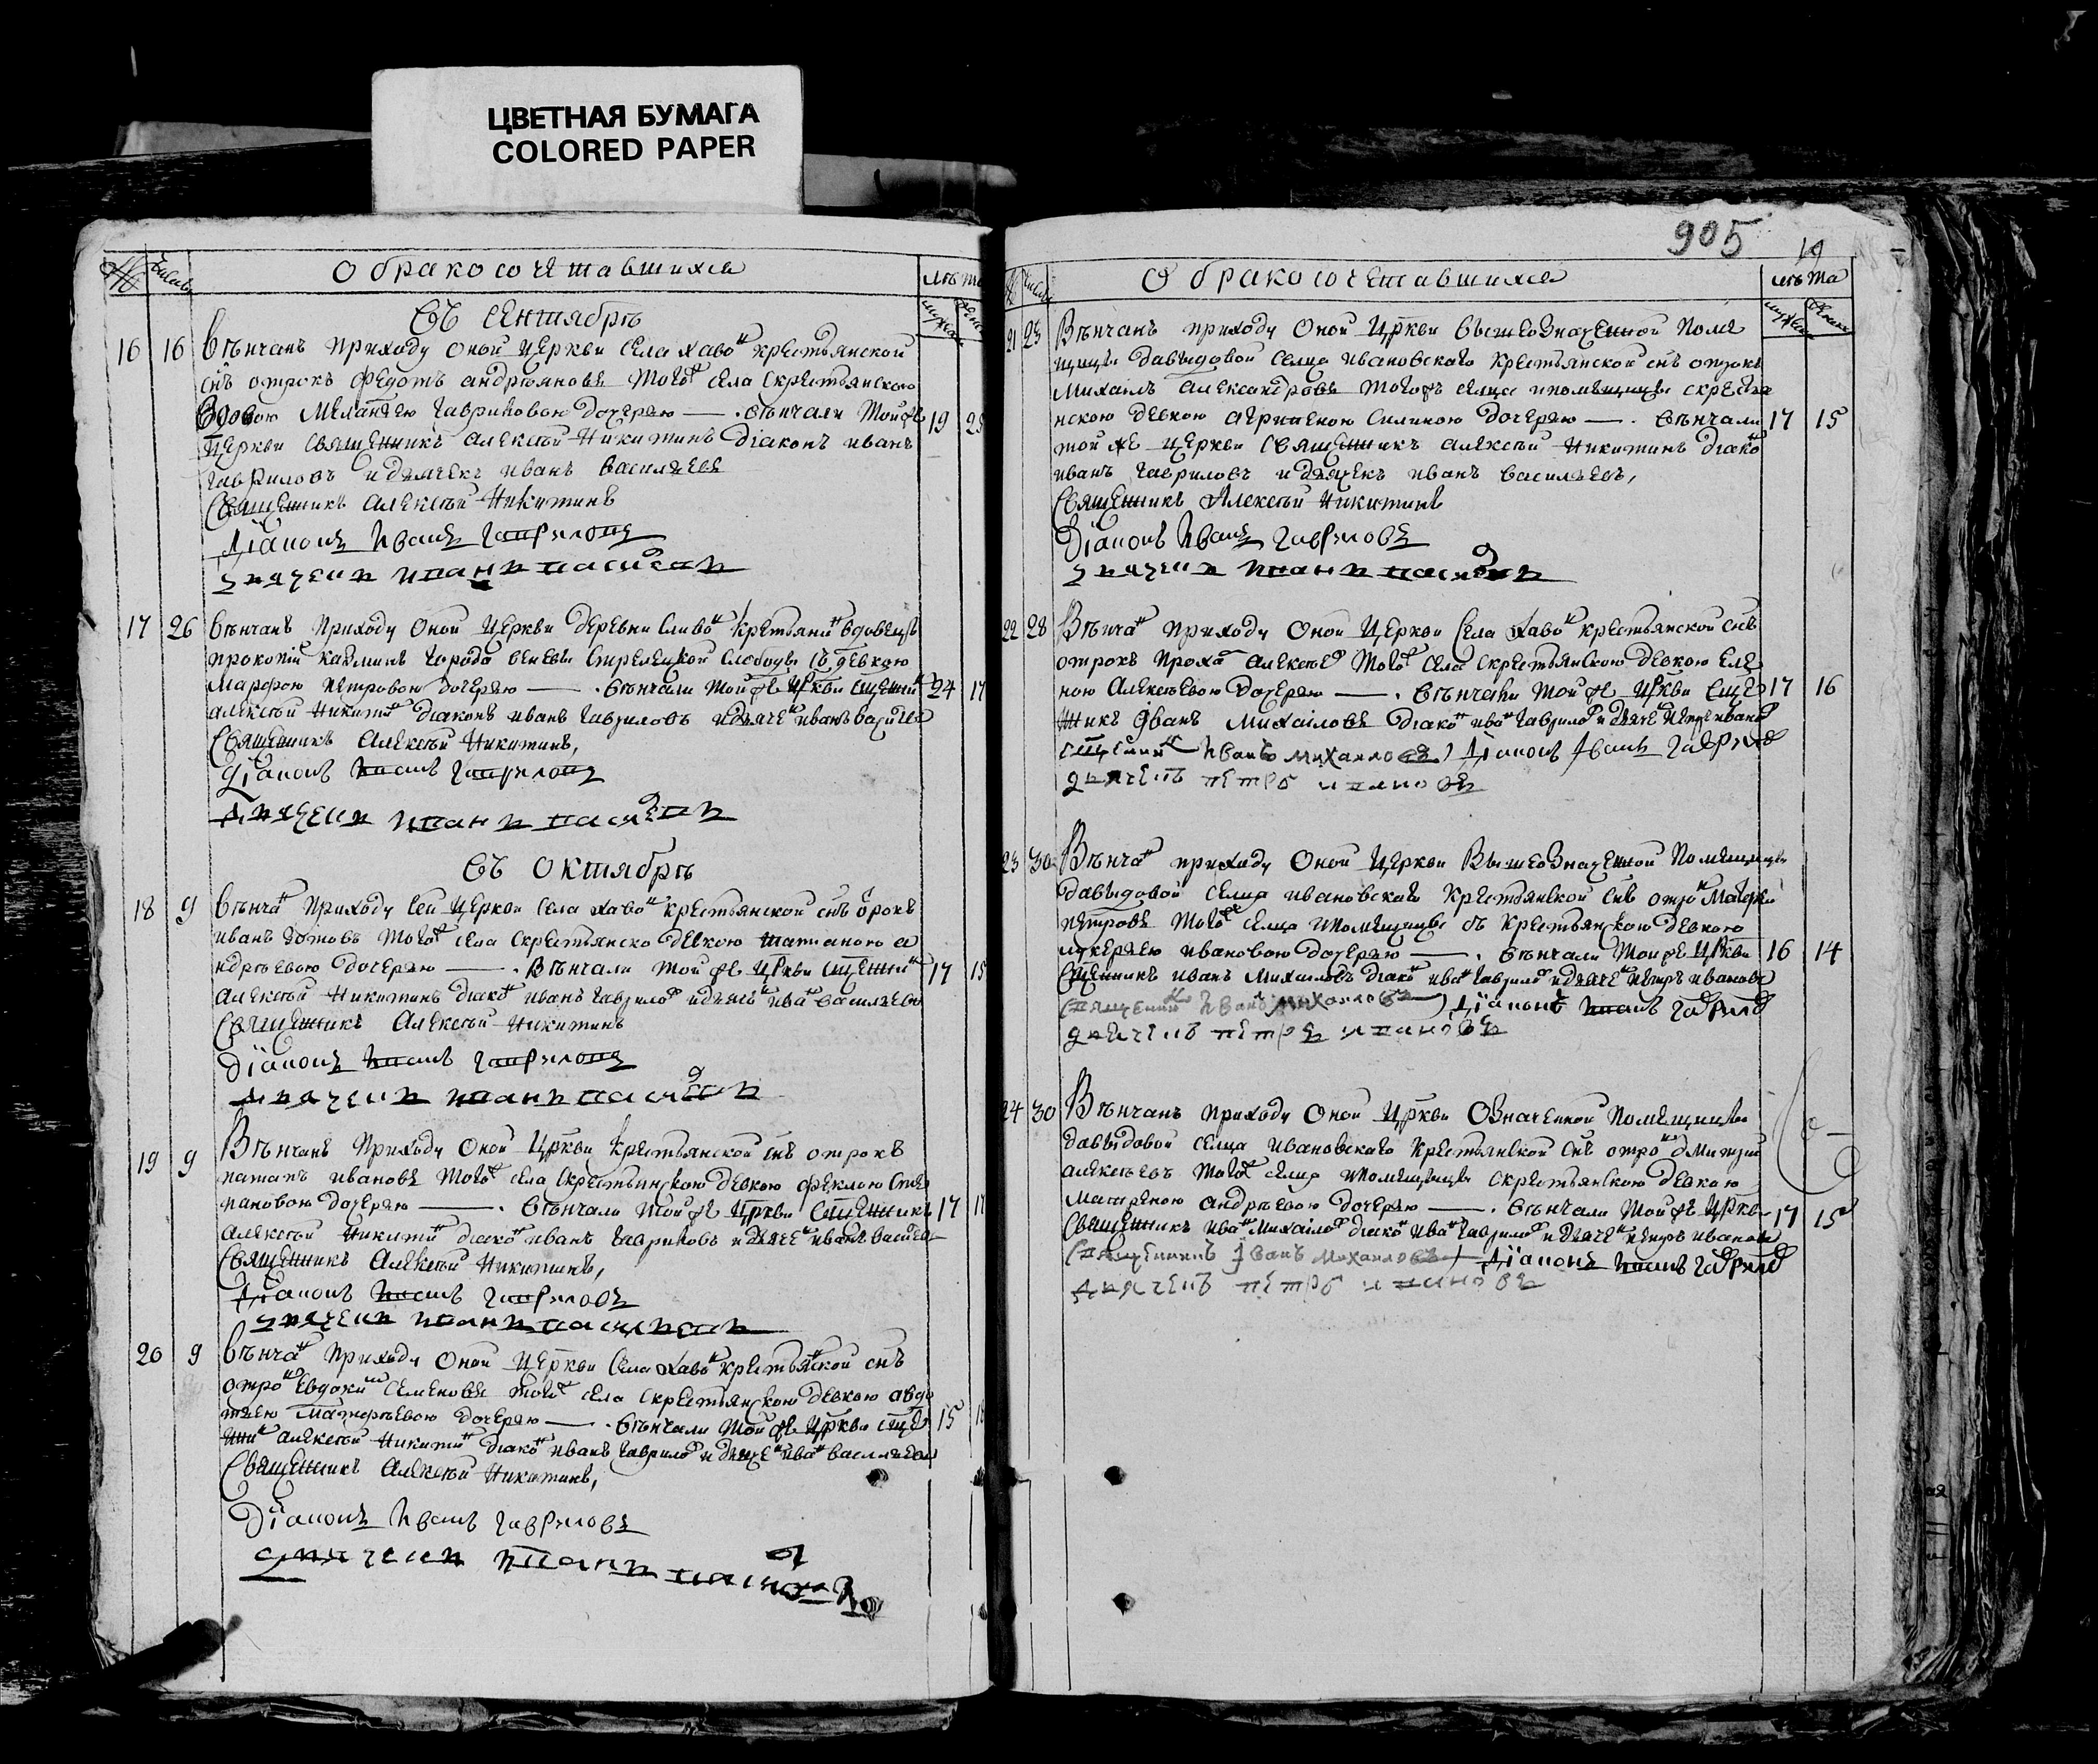 ЦВЕТНАЯ БУМАГА
COLORED PAPER
№
число
О бракосочетавшихся
лѣта
мужа
жены
въ сентябрѣ
16 16 Вѣнчанъ приходу оной церкви села хаво крестьянской
снъ отрокъ Федотъ андрѣяновъ тогож села скрестьянскою
вдовою Меланьею гавриловою дочерью — . вѣнчали тойже 19
церкви священникъ алексѣй Никитинъ діаконъ иванъ
гавриловъ идьячекъ иванъ васильевъ
священникъ алексѣй Никитинъ
Діаконъ Иванъ гавриловъ
дьячекъ иванъ васильевъ
17 26 вѣнчанъ приходу оной церкви деревни крестьянинъ вдовецъ
прокопій города веневы стрелецкой слободы съ девкою
марфою петровою дочерью — . вѣнчали той же цркви сщенникъ 24
алексѣй никитинъ діаконъ иванъ гавриловъ идьячекъ иванъ васильевъ
священникъ алексѣй Никитинъ,
діаконъ иванъ гавриловъ
дьячекъ иванъ васильевъ
въ октябрѣ
18 9 вѣнчанъ приходу сей церкви села хаво крестьянской снъ отрокъ
иванъ тогож села скрестьянско девкою татианою а
ндрѣевою дочерью — . вѣнчали той же цркви сщенникъ 17 15
алексѣй Никитинъ діаконъ иванъ гаврилов идьячекъ иванъ васильевъ
священникъ алексѣй Никитинъ
діаконъ иванъ гавриловъ
дьячекъ иванъ васильевъ
19 9 Вѣнчанъ приходу оной цркви крестьянской снъ отрокъ
ивановъ тогож села скрестьянскою девкою феклою сте
пановою дочерью — . вѣнчали той же цркви сщенникъ 17
алексѣй никитинъ діаконъ иванъ гавриловъ идьячекъ иванъ васильев
священникъ алексѣй Никитинъ,
діаконъ иванъ гавриловъ
дьячекъ иванъ васильевъ
20 9 вѣнчанъ приходу оной церкви села хаво крестьянской снъ
отрокъ евдоким семеновъ тогож села скрестьянскою девкою авдо
тьею дочерью — . вѣнчали той же цркви сще 15
нникъ алексѣй никитинъ діаконъ иванъ гаврилов идьячекъ иванъ васильевъ
священникъ алексѣй Никитинъ,
діаконъ Иванъ гавриловъ
дьячекъ иванъ
905
19
число
О бракосочетавшихся
лѣта
мужа
жены
21 23 Вѣнчанъ приходу оной цркви вышеозначенной поме
щицы давыдовой селца ивановскаго крестьянской снъ отрокъ
михаилъ александровъ тогожъ селца ипомещицы скрестья
нскою девкою агрипеною силиною дочерью — . вѣнчали 17 15
той же церкви священникъ алексѣй Никитинъ діаконъ
иванъ гавриловъ идьячекъ иванъ васильевъ,
священникъ алексѣй Никитинъ
діаконъ Иванъ гавриловъ
дьячекъ иванъ
22 28 Вѣнчанъ приходу оной церкви села хаво крестьянской снъ
отрокъ алексѣев тогож села скрестьянскою девкою еле
ною алексѣевою дочерью — . вѣнчали той же цркви сще 17 16
нникъ иванъ михаиловъ діаконъ иванъ гаврилов и дьячекъ петръ иванов
сщенникъ Иванъ михаиловъ діаконъ иванъ гаврилов
дьячекъ петръ ивановъ
23 30 Вѣнчанъ приходу оной церкви вышеозначенной помещицы
давыдовой селца ивановскаго крестьянской снъ отрокъ
петровъ тогож селца ипомещицы съ крестьянскою девкою
лукерьею ивановою дочерью — . вѣнчали той же цркви 16 14
сщенникъ иванъ михаиловъ діаконъ иванъ гаврилов идьячекъ петръ ивановъ
священникъ Иванъ михаиловъ діаконъ иванъ гаврилов
дьячекъ петръ ивановъ
24 30 Вѣнчанъ приходу оной цркви означенной помещицы
давыдовой селца ивановскаго крестьянской снъ отрокъ дмитрий
алексѣевъ тогож селца ипомещицы скрестьянскою девкою
матреною андрѣевою дочерью — . вѣнчали той же цркви 17 15
священникъ иванъ михаилов діаконъ иванъ гаврилов и дьячекъ петръ ивановъ
священникъ Иванъ михаиловъ діаконъ иванъ гаврилов
дьячекъ петръ ивановъ